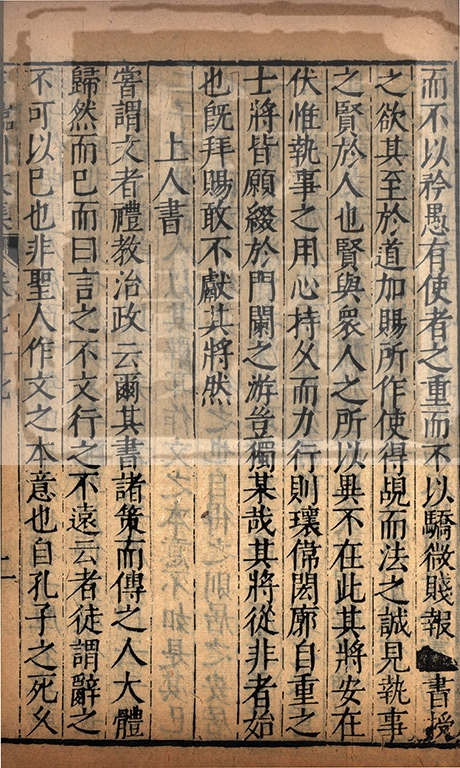 而不以矜愚有使者之重而不以驕微賤報書授
之欲其至於道加賜所作使得覘而法之誠見執事
之賢於人也賢與衆人之所以異不在此其將安在
伏惟執事之用心持乆而力行則瓌偹閎廓自重之
士將皆願綴於門闌之游豈獨某哉其將從非者始
也旣拜賜敢不獻其將然
上人書
嘗謂文者禮教治政云爾其書諸策而傳之人大體
歸然而已而曰言之不文行之不遠云者徒謂辭之
不可以已也非聖人作文之本意也自孔子之死乆